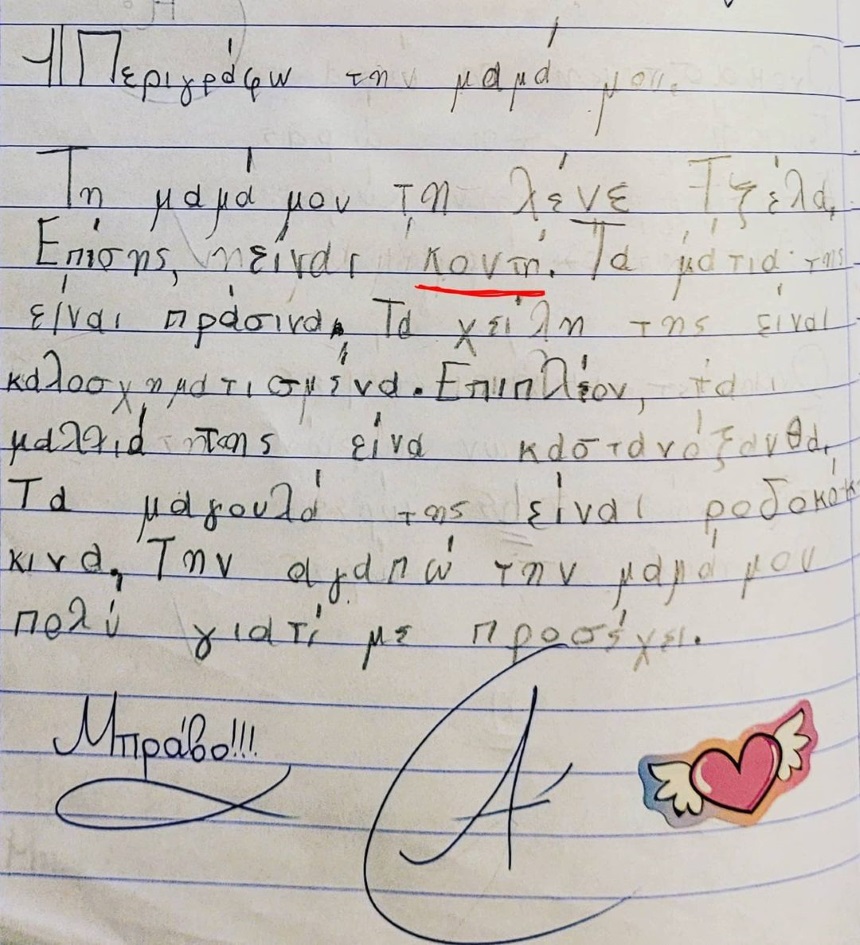 Περιγράφω την μαμά μου.
Τη μαμά μου τη λένε Τζέλα.
Επίσης, είναι κοντή. Τα μάτια της
είναι πράσινα. Τα χείλη της είναι
καλοσχηματισμένα. Επιπλέον, τα
μαλλιά της είνα καστανόξανθα.
Τα μαγουλά της είναι ροδοκόκ
κινα. Την αγαπώ την μαμά μου
πολύ γιατί με προσέχει.
Μπράβο!!!
Α